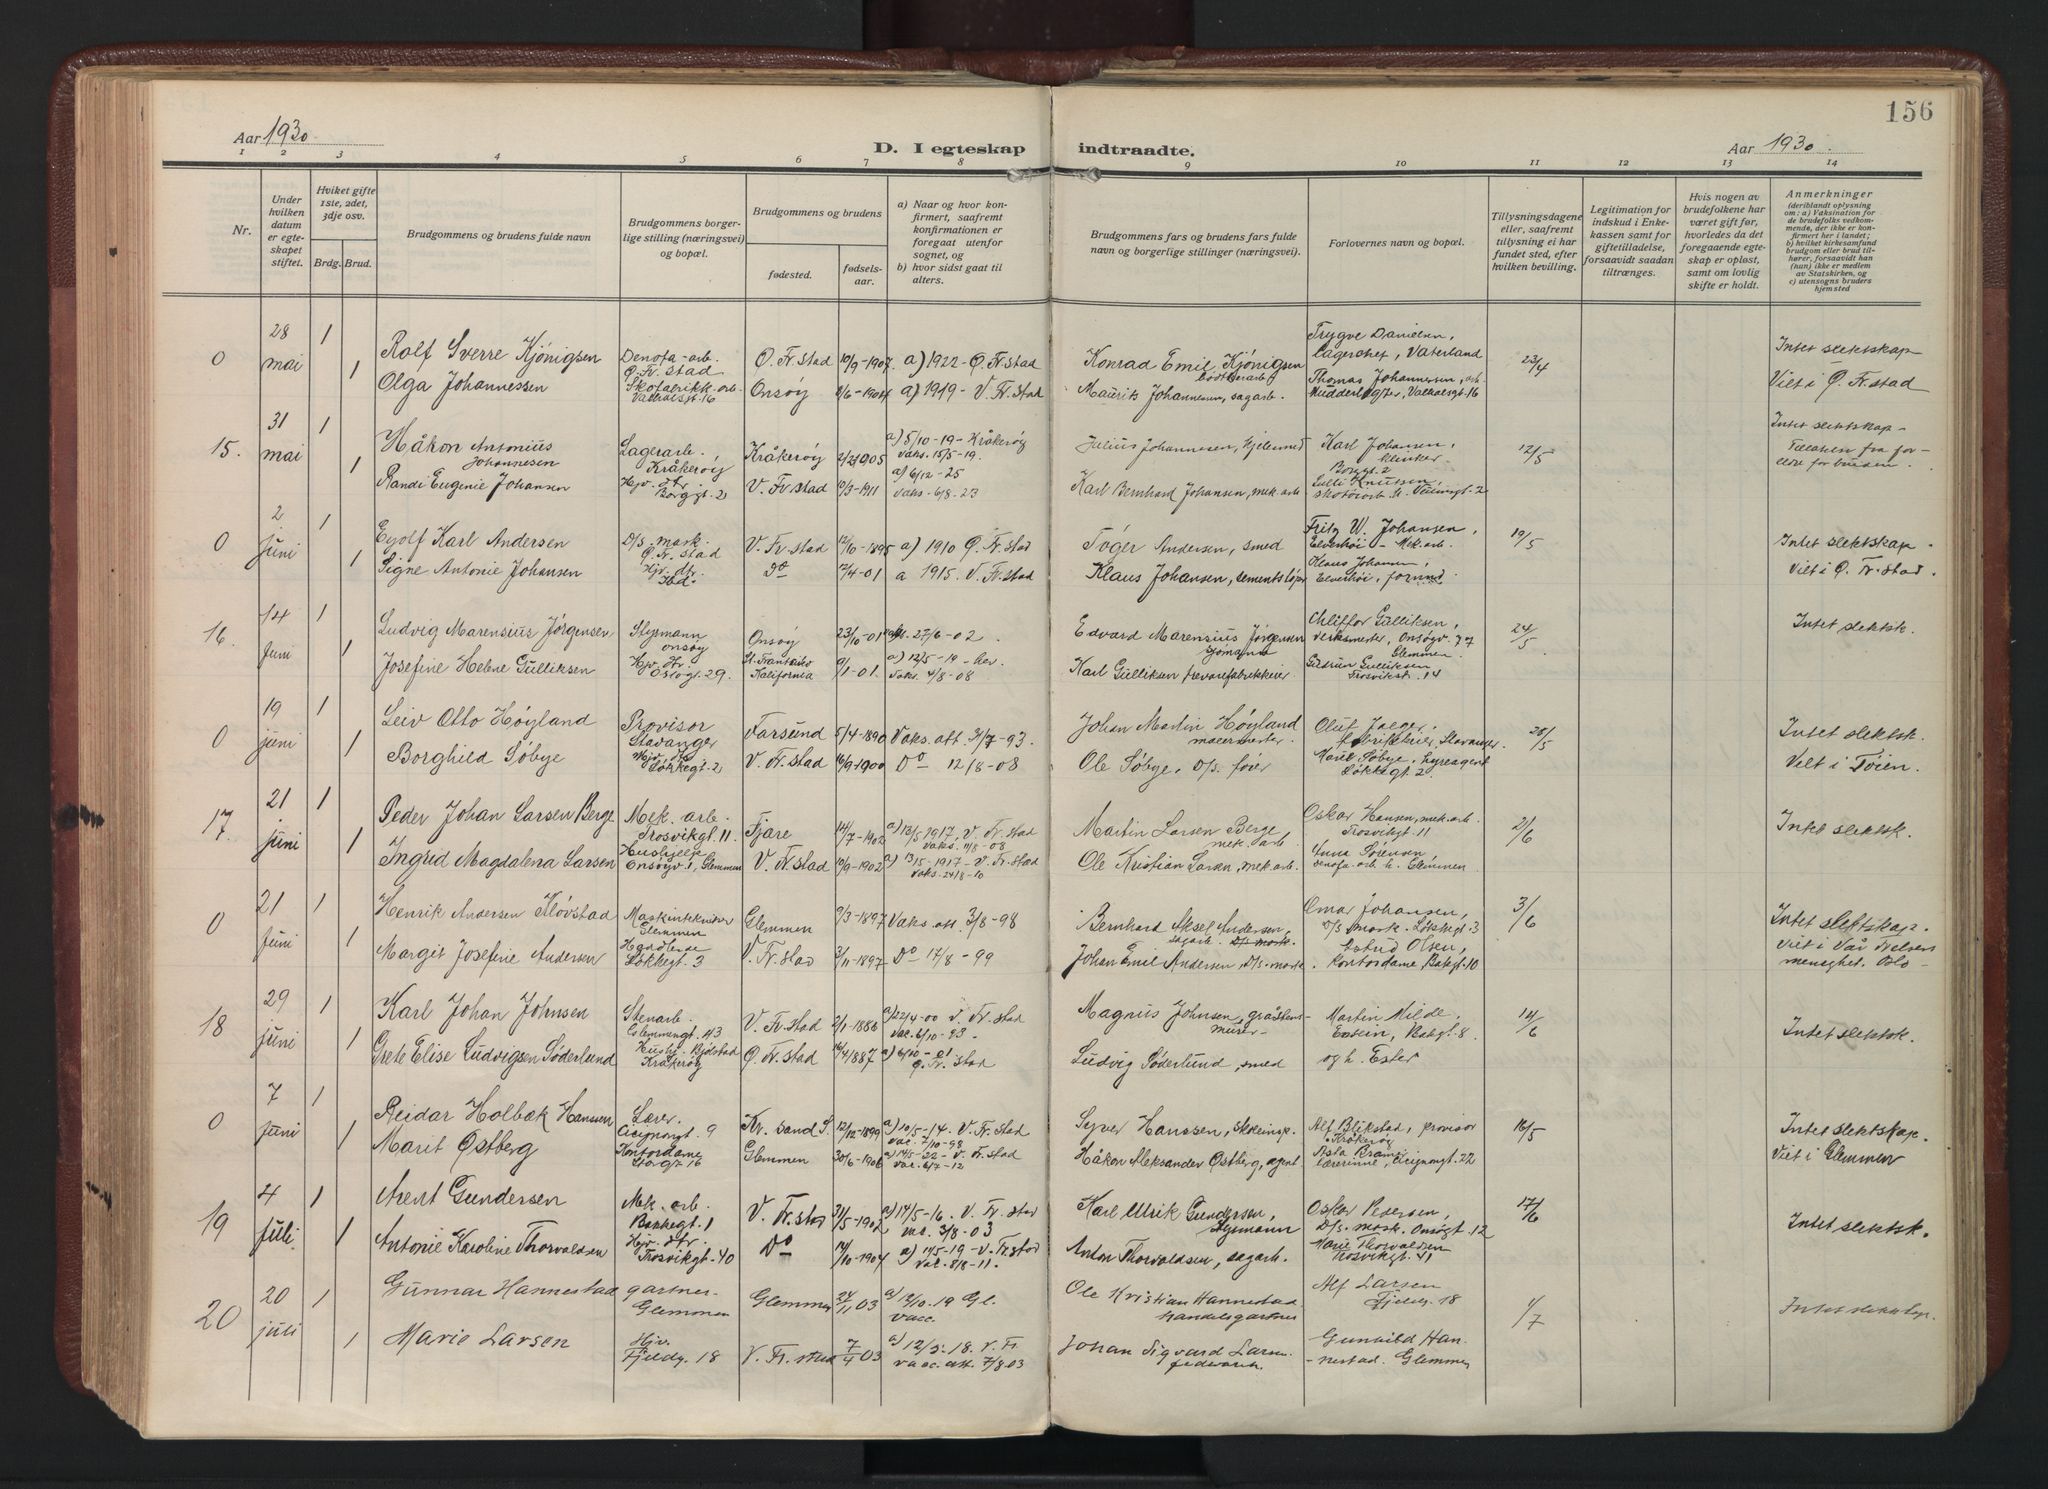 156
Aar 1930
D. I egteskap indtraadte.
Aar 1930
1 2 3 4 5 6 7 8 9 10 11 12 13 14
Nr.
Under hvilken datum er egteskapet stiftet.
Hviket gifte 1ste, 2det, 3dje osv.
Brdg. Brud.
Brudgommens og brudens fulde navn
Brudgommens borgerlige stilling (næringsvei) og bopæl.
Brudgommens og brudens
fødested.
fødselsaar.
a) Naar og hvor konfirmert, saafremt konfirmationen er foregaat utenfor sognet, og
b) hvor sidst gaat til alters.
Brudgommens fars og brudens fars fulde navn og borgerlige stillinger (næringsvei).
Forlovernes navn og bopæl.
Tillysningsdagene eller, saafremt tillysning ei har fundet sted, efter hvilken bevilling.
Legitimation for indskud i Enkekassen samt for giftetilladelse, forsaavidt saadan tiltrænges.
Hvis nogen av brudefolkene har været gift før, hvorledes da det foregaaende egteskap er opløst, samt om lovlig skifte er holdt.
Anmerkninger
(deriblandt oplysning om: a) Vaksination for de brudefolks vedkommende, der ikke er konfirmert her i landet; b) hvilket kirkesamfund brudgom eller brud tilhører, forsaavidt han (hun) ikke er medlem av Statskirken, og c) utensogns bruders hjemsted
0 28 mai 1 Rolf Sverre Kjönigsen Denofa-arb. Ö. Fr.stad Ö. Fr.stad 10/9-1907 a) 1922 - Ö. Fr.stad Konrad Emil Kjönigsen Trygve Danielsen, lagerchef, Vaterland 23/4 Intet slektskap
1 Olga Johannessen Skofabrikk-arb. 16 Onsöy 1904 a) 1919 - V. Fr.stad Maurits Johannesen, sagarb. Thomas Johannessen, 16 Viet i Ö. Fr.stad
15. 31 mai 1 Håkon Antonius Johannesen Lagerarb. Kråkeröy Kråkeröy 1905 a) 5/10-19 - Kråkeröy Vaks. 15/5-19. Julius Johannesen, Karl Johansen, klinker Borggt. 2 12/5 Intet slektskap - Tillatelse fra foreldre for bruden.
1 Randi Eugenie Johansen Hjv. dtr. Borggt. 2 V. Fr.stad 10/3-1911 a) 6/12-25 Vaks. 6/8-23 Karl Bernhard Johansen, mek. arb. Lulli Knutsen,
0 2 juni 1 Eyolf Karl Andersen D/s. mask. Ö. Fr. stad V. Fr.stad 12/10-1895 a) 1910 Ö. Fr.stad Töger Andersen, smed Fritz W. Johansen, Elverhöi - Mek.arb. 19/5 Intet slektskap -
1 Signe Antonie Johansen Hjv. dtr. do 4-01 a 1915. V. Fr.stad Klaus Johansen, Klaus Johansen, Elverhöi, formd. Viet i Ö. Fr.stad.
16. 14 juni 1 Ludvig Marensius Jörgensen Styrmann Onsöy Onsöy 23/10-01 Vaks. 27/6-02. Edvard Marensius Jörgensen sjömann Gulliksen, verksmester, Onsöyv. 77 Glemmen. 24/5 Intet slektsk.
1 Josefine Helene Gulliksen Hjv. dtr. Oslogt. 29. St. Frantzisko Kalifornia 9/1-01. a) 12/5- her. Vaks. 4/8-08 Karl Gulliksen trevarefabrikkeier Gudrun Gulliksen Trosvikst. 14
0 19 juni 1 Leiv Otto Höyland Provisor Stavanger Farsund 5/4-1890 Vaks. att. 3/7-93. Johan Martin Höyland murermester. Oluf Jæger, fabrikkeier, Stavanger. 28/5 Intet slektsk.
1 Borghild Söbye Hjv. Lökkegt. 2 V. Fr.stad 9-1900 Do 12/8-08 Ole Söbye, D/s. förer Söbye, Lökkegt 2. Viet i Töien.
17. 21 juni 1 Peder Johan Larsen Berge Mek. arb. Trosvikgt. 11. Fjære 14/7-1902 a) 13/5 1917, V. Fr.stad Vaks. 11/8-08 Martin Larsen Berge mek. arb. Oskar Hansen, mek. arb. Trosvikgt. 11 2/6 Intet slektsk.
1 Ingrid Magdalena Larsen Hushjelp Onsöyv. 1, Glemmen V. Fr.stad 10/9-1902 a) 13/5-1917 - V. Fr.stad Vaks. 24/8-10 Ole Kristian Larsen, mek. arb. Anna Sörensen Denofa-arb. h. Glemmen
0 21 juni 1 Henrik Andersen Klövstad Maskintekniker Glemmen Glemmen 9/3-1897 Vaks. att. 3/8-98 Bernhard Aksel Andersen, sagarb. Omar Johansen, D/s mask. Lökkegt. 3 3/6 Intet slektskap.
1 Margit Josefine Andersen Lökkegt. 3 V. Fr.stad 3/11-1897 Do 17/8-99 Johan Emil Andersen, D/s. mask. Astrid Olsen, kontordame, Bakgt. 10 Viet i Vår Frelsers menighet. Oslo -
18 29 juni 1 Karl Johan Johnsen Stenarb. Glemmengt. 43 V. Fr.stad 2/1-1886 a) 22/4-00 V. Fr.stad Vac. 6/10-93 - Magnus Johnsen, gråstensmurer - Martin Milde, Bakgt. 8. 14/6 Intet slektsk.
1 Grete Elise Ludvigsen Söderlund Hushj. Bjölstad Kråkeröy Ö. Fr.stad 4/1887 a) 6/10-01 Ö. Fr.stad Ludvig Söderlund, smed og h. Ester
0 7 juni 1 Reidar Holbæk Hanssen Lærer. Cicignongt. 9 Kr.sand S. 12/12-1899 a) 10/5-14. V. Fr.stad Vac. 7/10-98 Syver Hanssen, skoleinsp. Alf Blikstad, provisor Kråkeröy 16/5 Intet slektskap.
1 Marit Östberg Kontordame Storgt 16 Glemmen 30/6-1906 a) 14/5-22 - V. Fr.stad Vac. 6/7-12 Håkon Aleksander Östberg, agent Asta Kramer lærerinne, Cicignongt. 22 Viet i Glemmen
19 4 juli. 1 Arent Gundersen Mek. arb. Bakkegt. 1 V. Fr.stad 31/5-1902 a) 14/5-16. V. Fr.stad vac. 3/8-03 Karl Ulrik Gundersen, styrmann Oskar Pedersen, D/s. mask. Onsögt. 12 17/6 Intet slektsk.
1 Antonie Karoline Thorvaldsen Hjv. dtr. Trosvikgt. 40 Do 14/10-1904 a) 11/5-19 - V. Fr.stad Vac. 8/8-11. Anton Thorvaldsen, sagarb. Marie Thorvaldsen Trosvikgt. 41
20 20 juli 1 Gunnar Hannestad gartner Glemmen Glemmen 24/11 03 a) 12/10. 19 Gl. vacc. Ole Kristian Hannestad handelsgartner Alf Larsen Fjeldg. 18 1/7 Intet slektskap.
1 Marie Larsen Hjv. Fjeldg. 18 V. Fr. stad 7/4 03 a) 12/5. 18. V. Fr. vacc. att. 7/8 03 Johan Sigvard Larsen Gunhild Hannestad. Glemmen